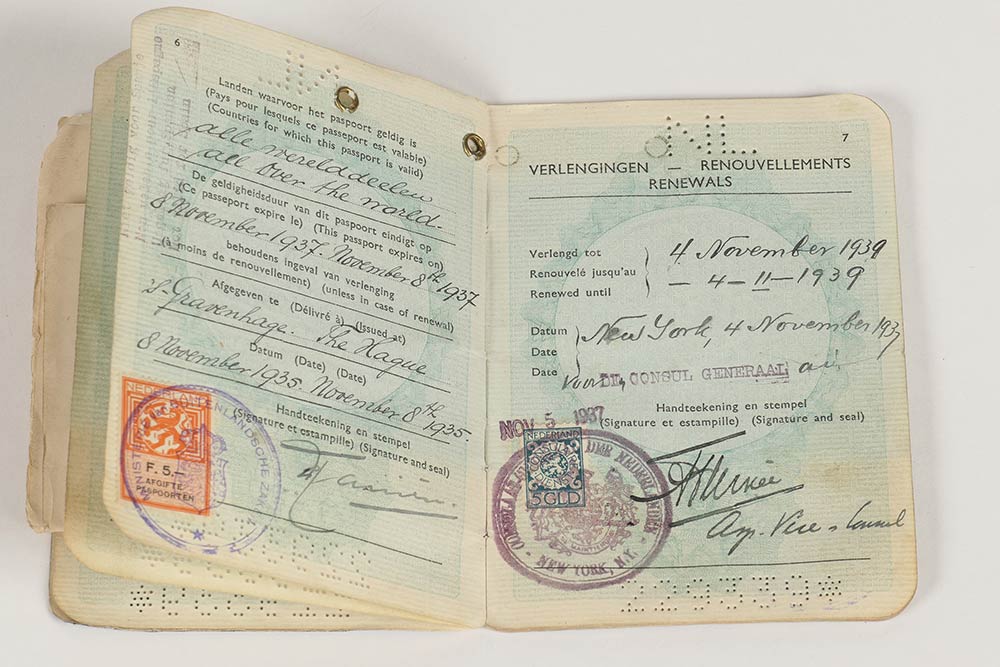 6
Landen waarvoor het paspoort geldig is
(Pays pour lesquels ce passeport est valable)
(Countries for which this passport is valid)
alle werelddeelen
all over the world.
De geldigheidsduur van dit paspoort eindigt op
(Ce passeport expire le) (This passport expires on)
8 November 1937. November 8th 1937
behoudens ingeval van verlenging
(à moins de renouvellement) (unless in case of renewal)
Afgegeven te (Délivré à) (Issued at)
's-Gravenhage. The Hague
Datum (Date) (Date)
8 November 1935. November 8th 1935.
Handteekening en stempel
(Signature et estampille) (Signature and seal)
NEDERLAND
F. 5.—
AFGIFTE
PASPOORTEN
NL
7
VERLENGINGEN — RENOUVELLEMENTS
RENEWALS
Verlengd tot
Renouvelé jusqu'au
Renewed until
4 November 1939
— 4 — II — 1939
Datum
Date
Date
New York, 4 November 1937
Voor DE CONSUL GENERAAL
Handteekening en stempel
(Signature et estampille) (Signature and seal)
NOV 5 1937
NEDERLAND
5 GLD
NEW YORK, N.Y.